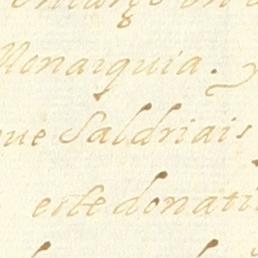 Monarquia. y
que Saldriais
este donati